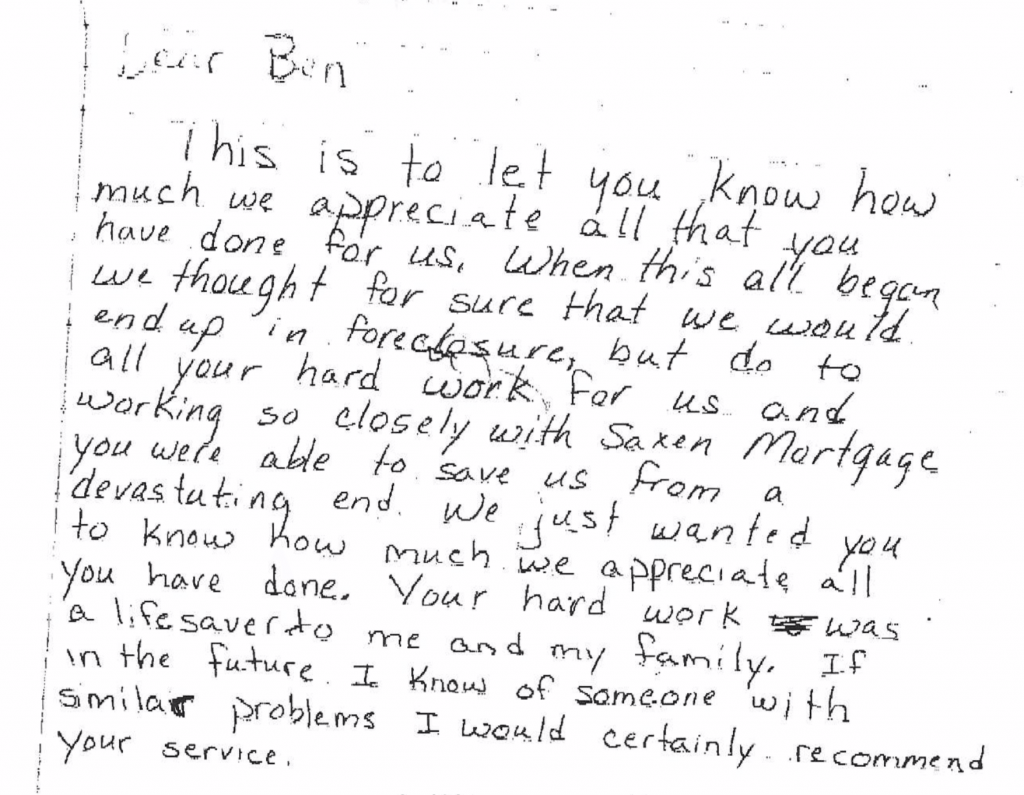 Dear Ben
This is to let you know how
much we appreciate all that you
have done for us. When this all began
we thought for sure that we would
end up in foreclosure, but do to
all your hard work for us and
working so closely with Saxen Mortgage
you were able to save us from a
devastating end. We just wanted you
to know how much we appreciate all
you have done. Your hard work was
a lifesaver to me and my family. If
in the future I know of someone with
similar problems I would certainly recommend
your service.